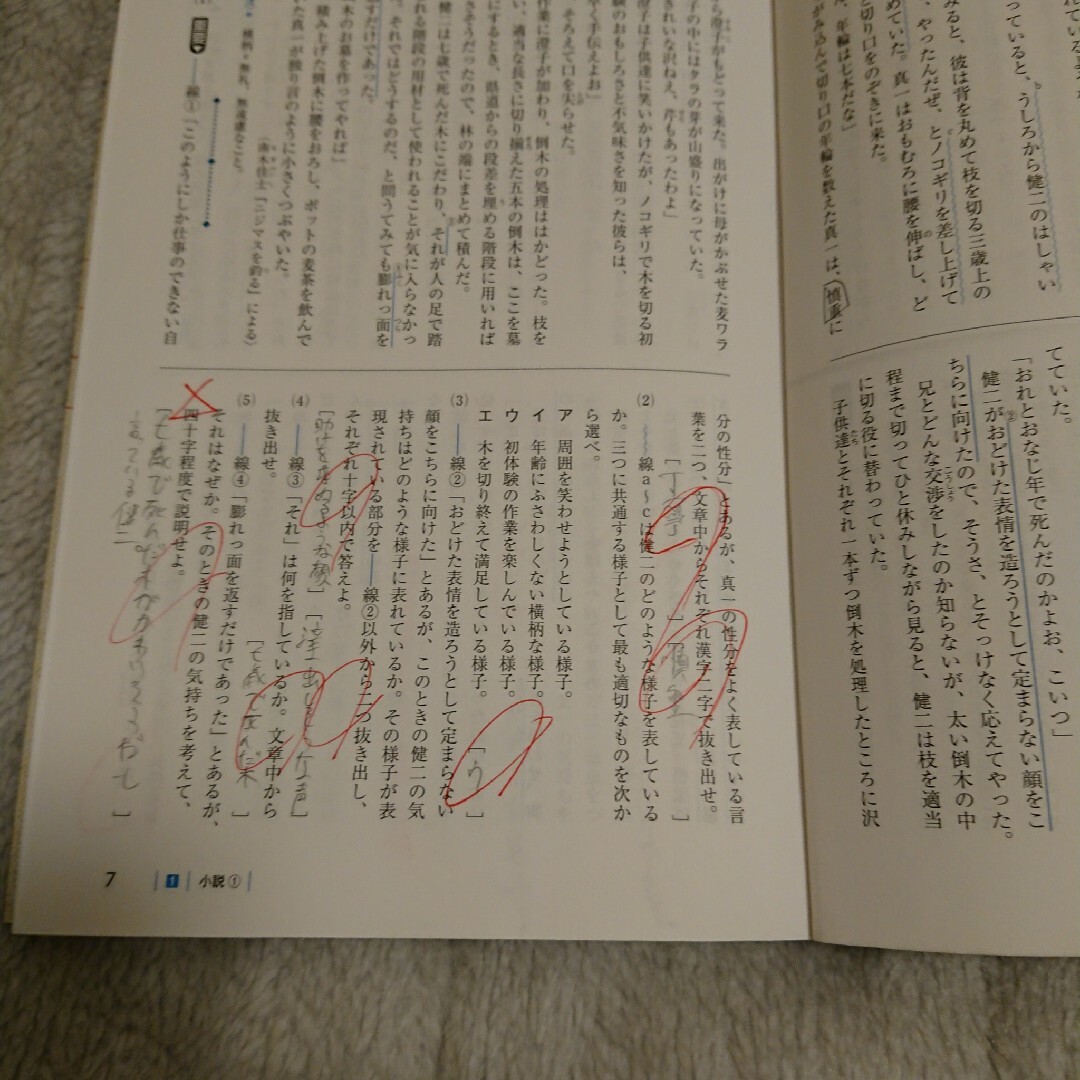 れている真
っていると、うしろから健二のはしゃい
みると、彼は背を丸めて枝を切る三歳上の
、やったんだぜ、とノコギリを差し上げて
めていた。真一はおもむろに腰を伸ばし、ど
と切り口をのぞきに来た。
、年輪は七本だな」
がみ込んで切り口の年輪を数えた真一は、慎重に
てていた。
「おれとおなじ年で死んだのかよお、こいつ」
健二がおどけた表情を造ろうとして定まらない顔をこ
ちらに向けたので、そうさ、とそっけなく応えてやった。
兄とどんな交渉をしたのか知らないが、太い倒木の中
程まで切ってひと休みしながら見ると、健二は枝を適当
に切る役に替わっていた。
子供達とそれぞれ一本ずつ倒木を処理したところに沢
ら澄子がもどって来た。出がけに母がかぶせた麦ワラ
子の中にはタラの芽が山盛りになっていた。
きれいな沢ねえ、芹もあったわよ」
澄子は子供達に笑いかけたが、ノコギリで木を切る初
験のおもしろさと不気味さを知った彼らは、
早く手伝えよお」
そろえて口を尖らせた。
作業に澄子が加わり、倒木の処理ははかどった。枝を
い、適当な長さに切り揃えた五本の倒木は、ここを墓
にするとき、県道からの段差を埋める階段に用いれば
さそうだったので、林の端にまとめて積んだ。
健二は七歳で死んだ木にこだわり、それが人の足で踏
れる階段の用材として使われることが気に入らなかっ
、それではどうするのだ、と問うてみても膨れっ面を
すだけであった。
木のお墓を作ってやれば」
積み上げた倒木に腰をおろし、ポットの麦茶を飲んで
いた真一が独り言のように小さくつぶやいた。
(南木佳士「ニジマスを釣る」による)
横柄・無礼、無遠慮なこと。
線①「このようにしか仕事のできない自
分の性分」とあるが、真一の性分をよく表している言
葉を二つ、文章中からそれぞれ漢字二字で抜き出せ。
[丁寧] [慎重]
(2) 線a〜cは健二のどのような様子を表している
か。三つに共通する様子として最も適切なものを次か
ら選べ。
ア 周囲を笑わせようとしている様子。
イ 年齢にふさわしくない横柄な様子。
ウ 初体験の作業を楽しんでいる様子。
エ 木を切り終えて満足している様子。
[ウ]
(3) 線②「おどけた表情を造ろうとして定まらない
顔をこちらに向けた」とあるが、このときの健二の気
持ちはどのような様子に表れているか。その様子が表
現されている部分を線②以外から二つ抜き出し、
それぞれ十字以内で答えよ。
[助けを求めるような顔] [泣き出しそうな声]
(4) 線③「それ」は何を指しているか。文章中から
抜き出せ。
[七歳で死んだ木]
(5) 線④「膨れっ面を返すだけであった」とあるが、
それはなぜか。そのときの健二の気持ちを考えて、
四十字程度で説明せよ。
[七歳で死んだ木が
ている健二
7 1 小説①